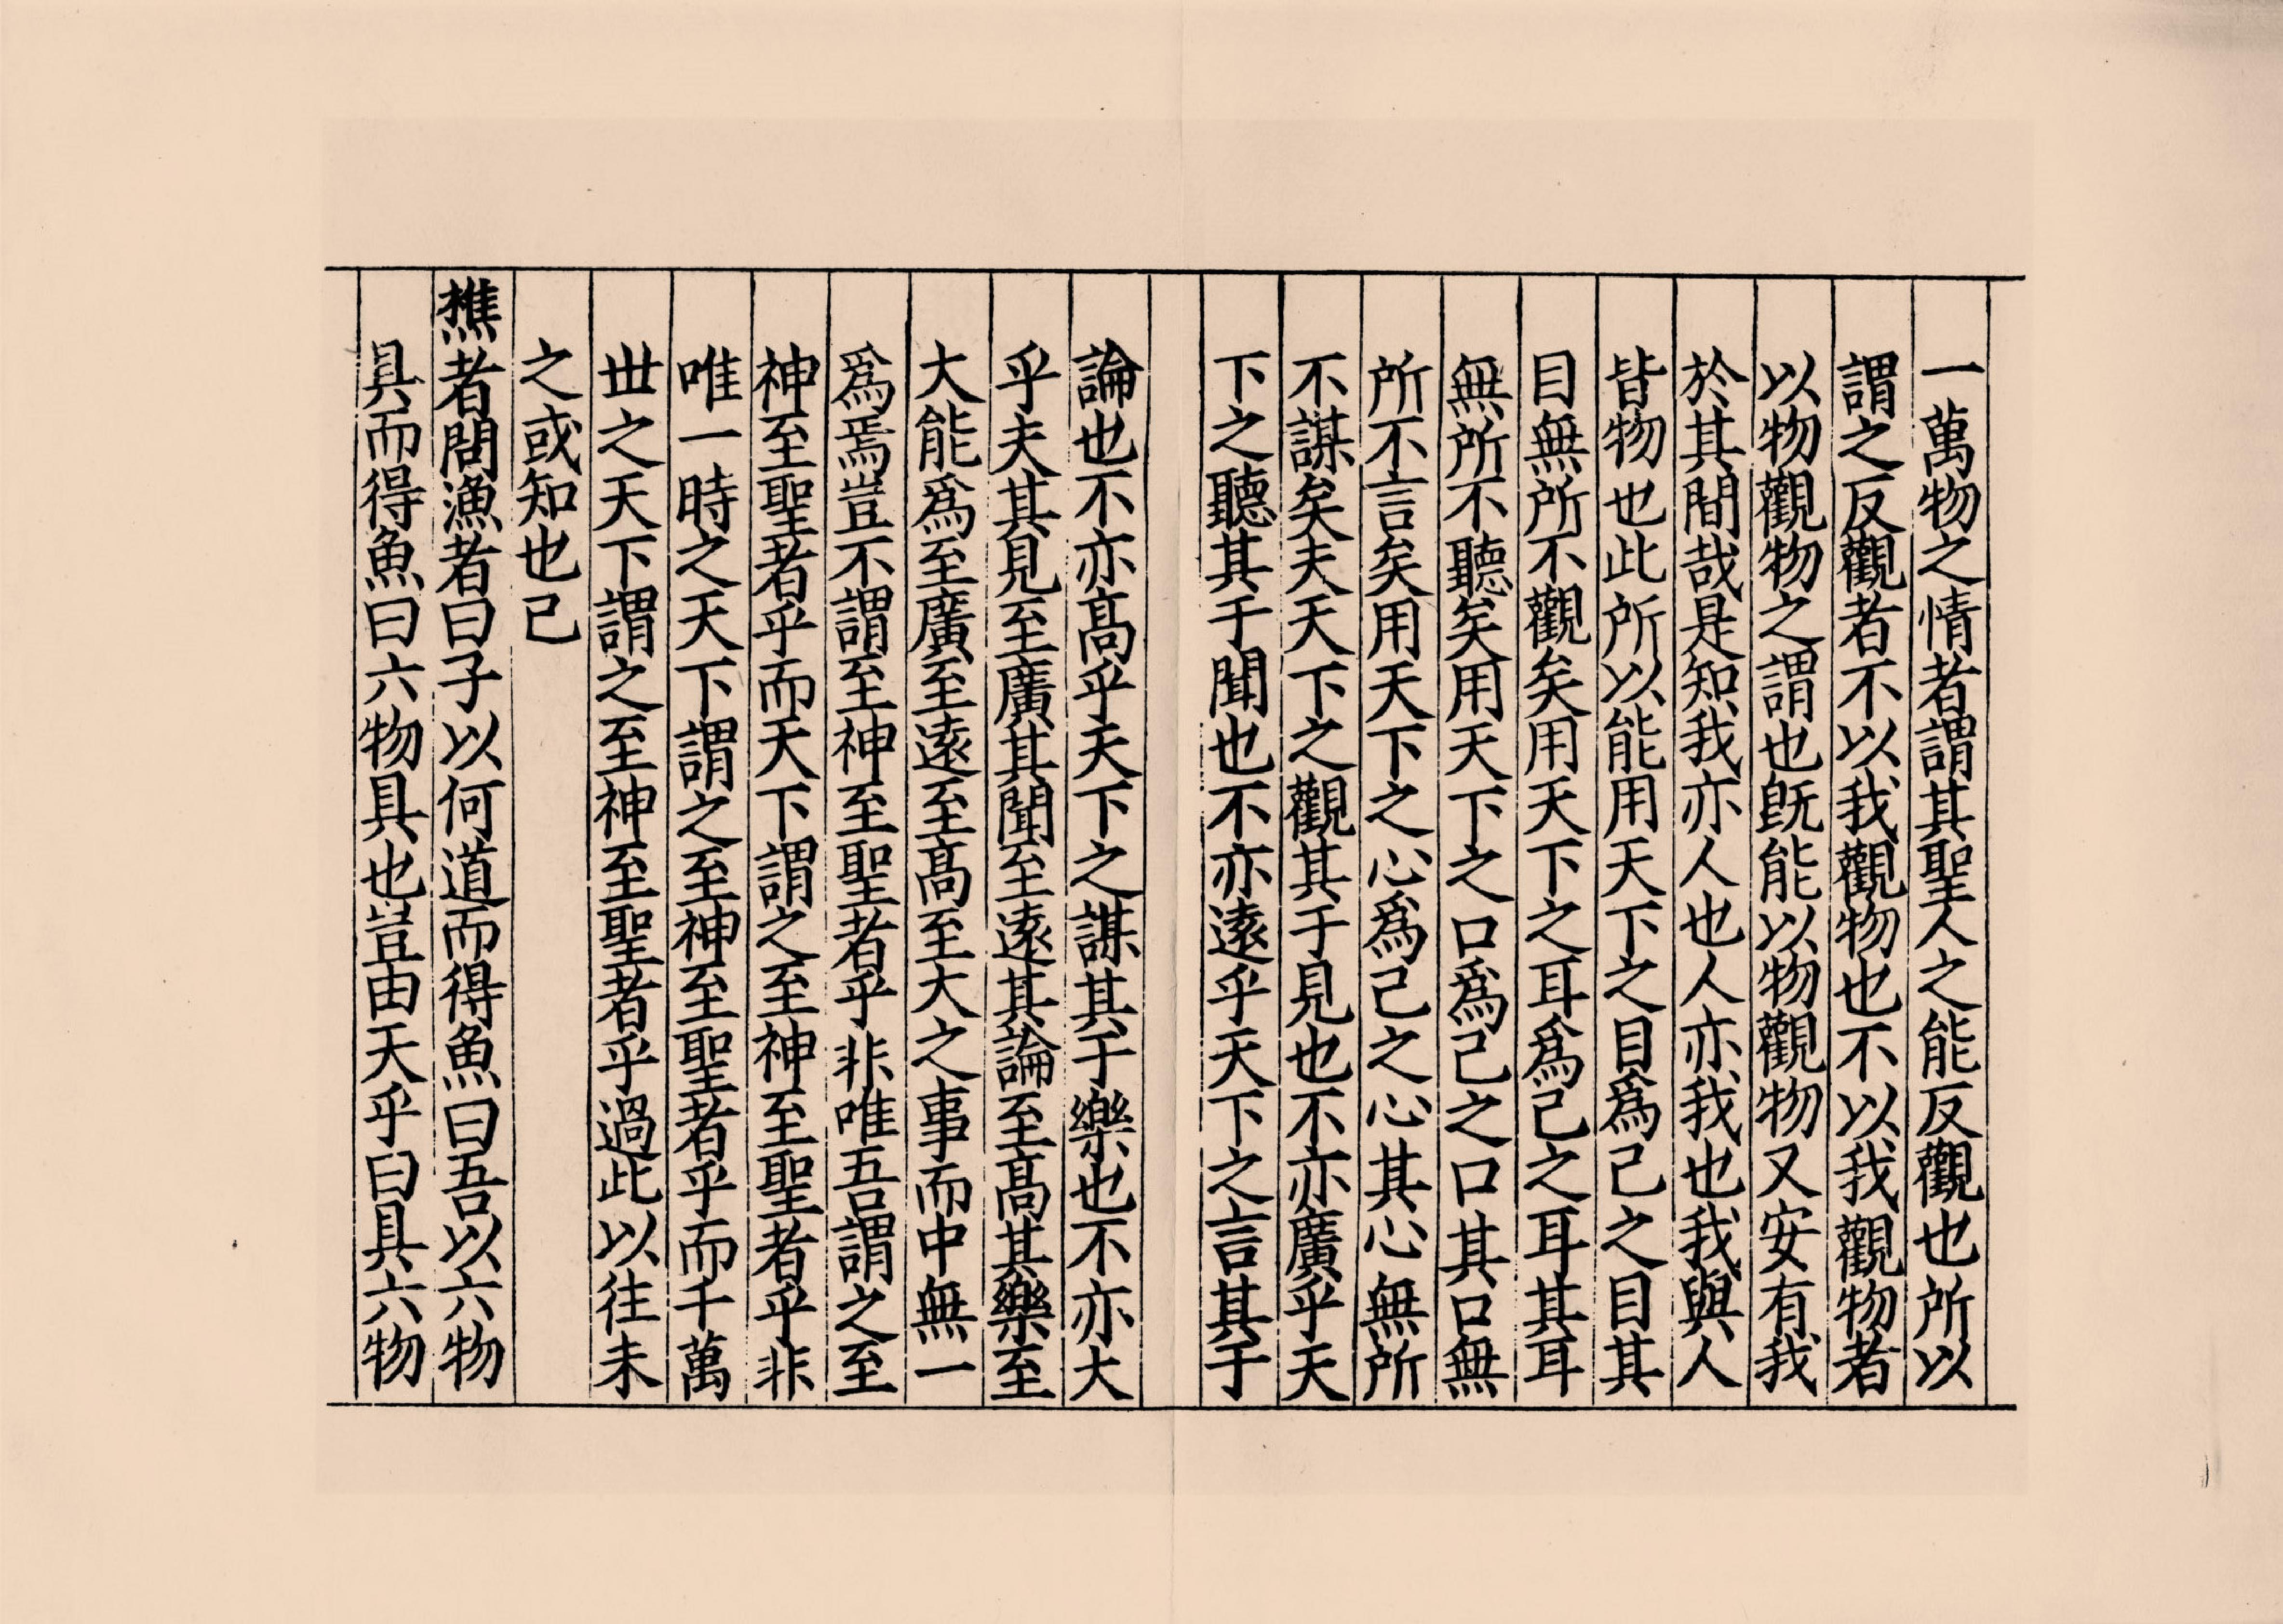 一萬物之情者謂其聖人之能反觀也所以
謂之反觀者不以我觀物也不以我觀物者
以物觀物之謂也旣能以物觀物又安有我
於其間哉是知我亦人也人亦我也我與人
皆物也此所以能用天下之目爲己之目其
目無所不觀矣用天下之耳爲己之耳其耳
無所不聽矣用天下之口爲己之口其口無
所不言矣用天下之心爲己之心其心無所
不謀矣夫天下之觀其于見也不亦廣乎天
下之聽其于聞也不亦遠乎天下之言其于
論也不亦髙乎天下之謀其于樂也不亦大
乎夫其見至廣其聞至遠其論至髙其樂至
大能爲至廣至遠至髙至大之事而中無一
爲焉豈不謂至神至聖者乎非唯吾謂之至
神至聖者乎而天下謂之至神至聖者乎非
唯一時之天下謂之至神至聖者乎而千萬
世之天下謂之至神至聖者乎過此以往未
之或知也己
樵者問漁者曰子以何道而得魚曰吾以六物
具而得魚曰六物具也豈由天乎曰具六物